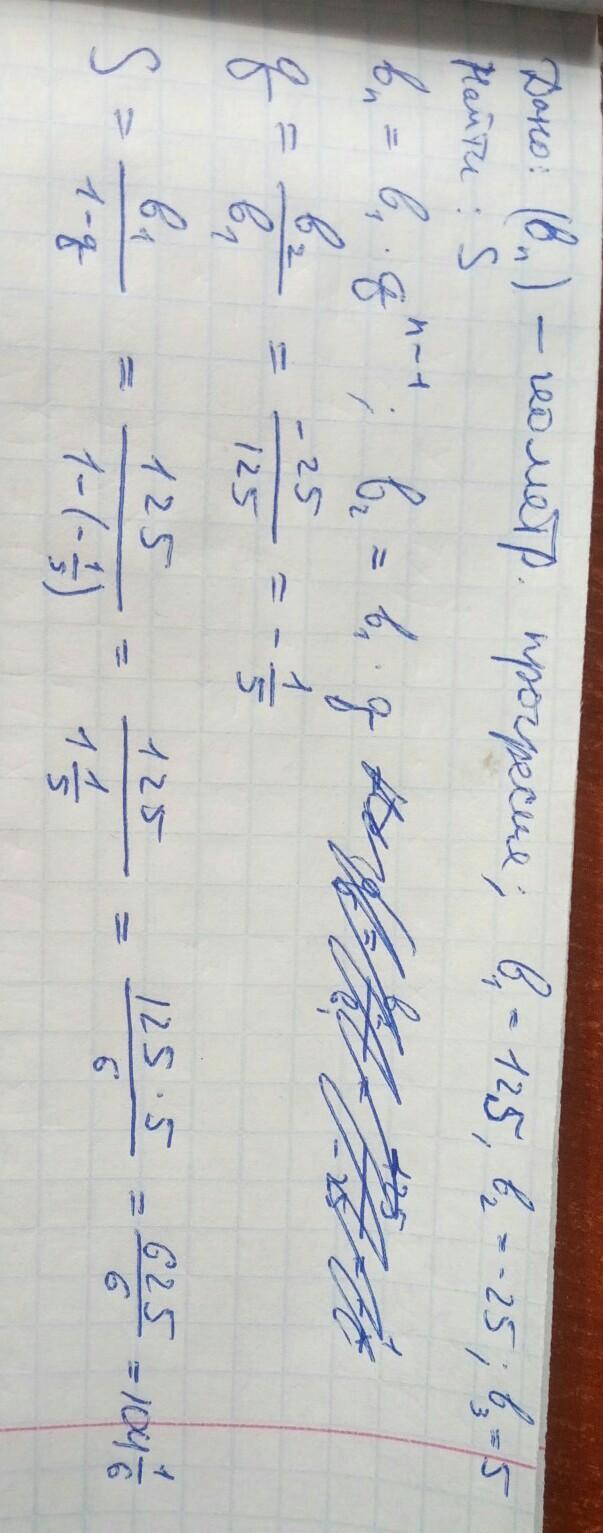 Дано: (bₙ) – геометр. прогрессия; b₁ = 125; b₂ = -25; b₃ = 5
Найти: S
bₙ = b₁ · qⁿ⁻¹; b₂ = b₁ · q
q = b₂/b₁ = -25/125 = -1/5
S = b₁/(1-q) = 125/(1-(-1/5)) = 125/(1 1/5) = (125·5)/6 = 625/6 = 104 1/6